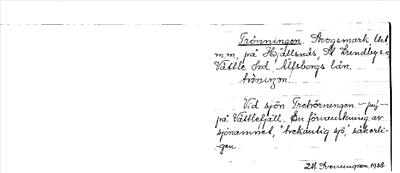 Trönningen. Skogsmark, 
m.m., på Hjällsnäs, St Lundby s.n,
Vättle hd. Älfsborgs län.
trönızən.
Vid sjön Trehörningen
på Vättlefjäll. En förvanskning av
sjönamnet, "trekantig sjö," säkerli-
gen.
1928